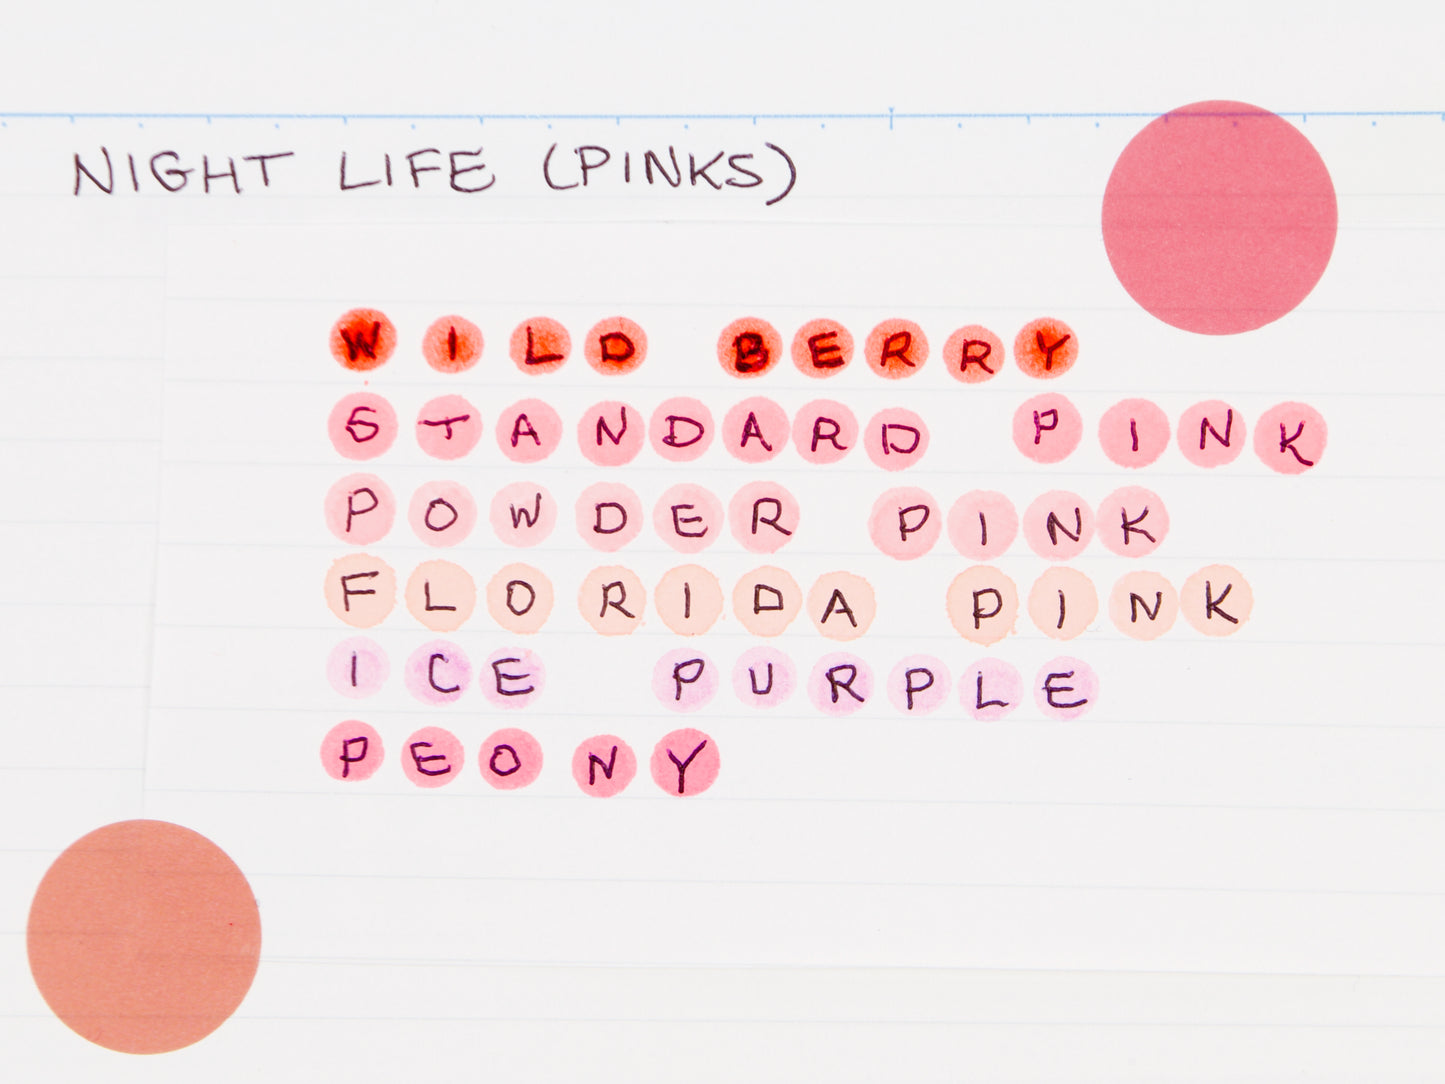 NIGHT LIFE (PINKS)
WILD BERRY
STANDARD PINK
POWDER PINK
FLORIDA PINK
ICE PURPLE
PEONY